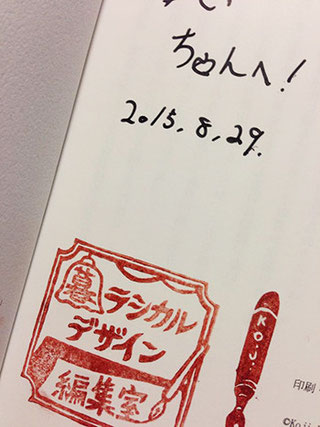 ちゅんへ!
2015.8.29.
暮ラシカル
デザイン
編集室
KOJI
印刷
©Koji